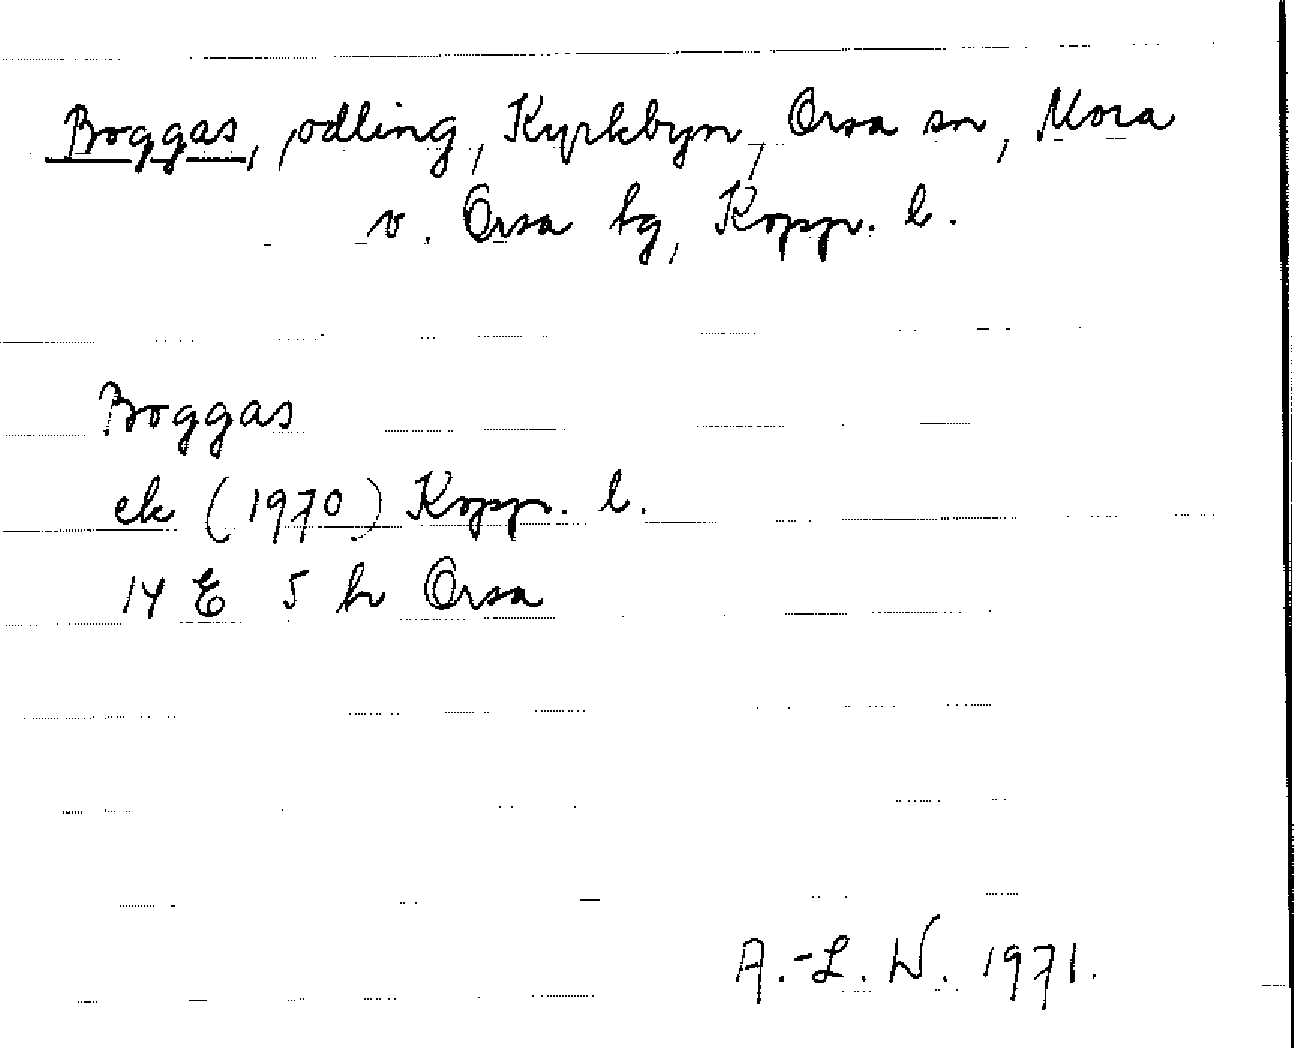 Boggas, odling, Kyrkbyn, Orsa sn, Mora
o. Orsa tg, Kopp. l.
Boggas
ek (1970) Kopp. l.
14 E 5 h Orsa
A.-L. W. 1971.